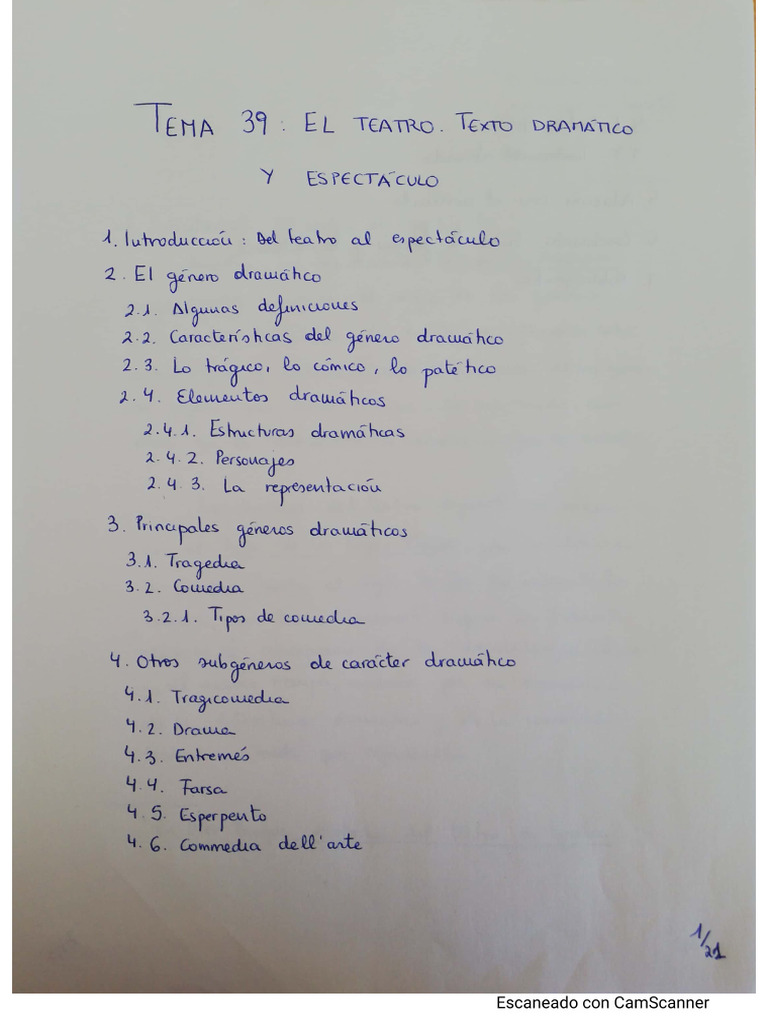 TEMA 39: EL TEATRO. TEXTO DRAMÁTICO
Y ESPECTÁCULO
1. Introducción: Del teatro al espectáculo
2. El género dramático
2.1. Algunas definiciones
2.2. Características del género dramático
2.3. Lo trágico, lo cómico, lo patético
2.4. Elementos dramáticos
2.4.1. Estructuras dramáticas
2.4.2. Personajes
2.4.3. La representación
3. Principales géneros dramáticos
3.1. Tragedia
3.2. Comedia
3.2.1. Tipos de comedia
4. Otros subgéneros de carácter dramático
4.1. Tragicomedia
4.2. Drama
4.3. Entremés
4.4. Farsa
4.5. Esperpento
4.6. Commedia dell'arte
1/21
Escaneado con CamScanner